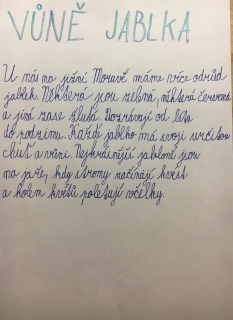 VŮNĚ JABLKA
U nás na jižní Moravě máme více odrůd
jablek. Některá jsou zelená, některá červená
a jiná zase žlutá. Dozrávají od léta
do podzimu. Každé jablko má svoji určitou
chuť a vůni. Nejkrásnější jabloně jsou
na jaře, kdy stromy začínají kvést
a kolem květů poletují včelky.